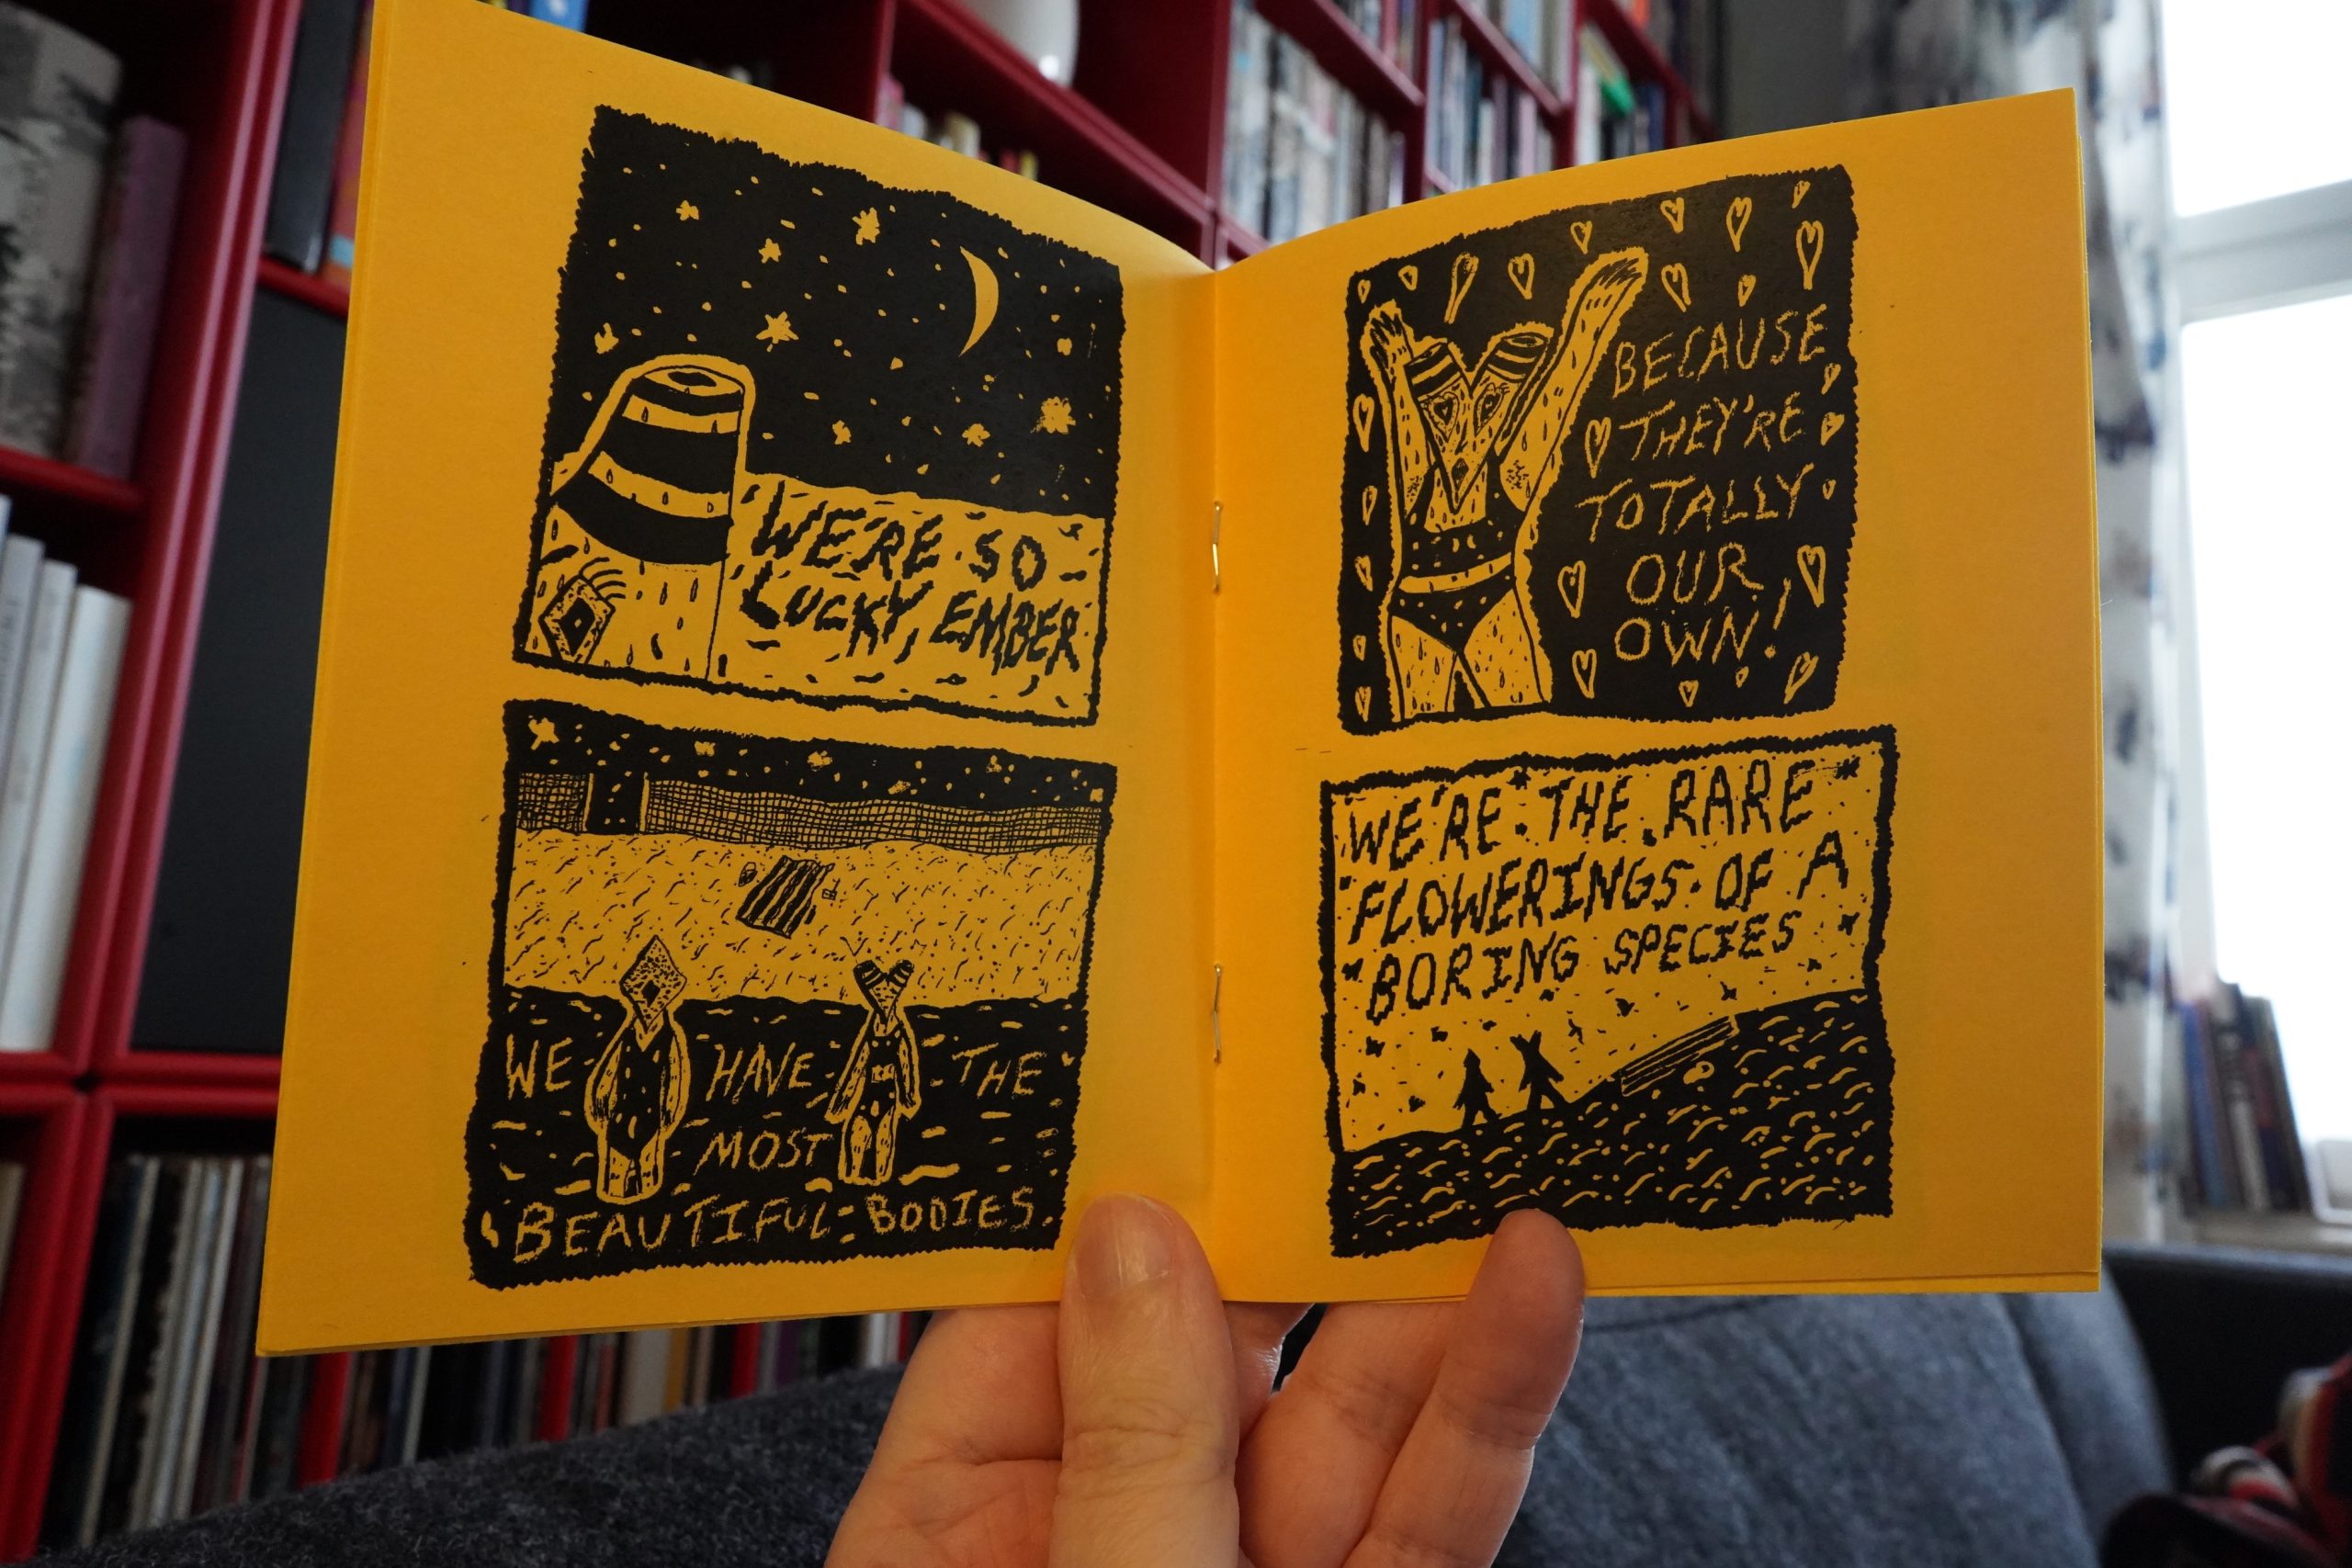 WE'RE SO
LUCKY, EMBER
WE HAVE THE
MOST
BEAUTIFUL BODIES.
BECAUSE
THEY'RE
TOTALLY
OUR
OWN!
WE'RE THE RARE
FLOWERINGS OF A
BORING SPECIES